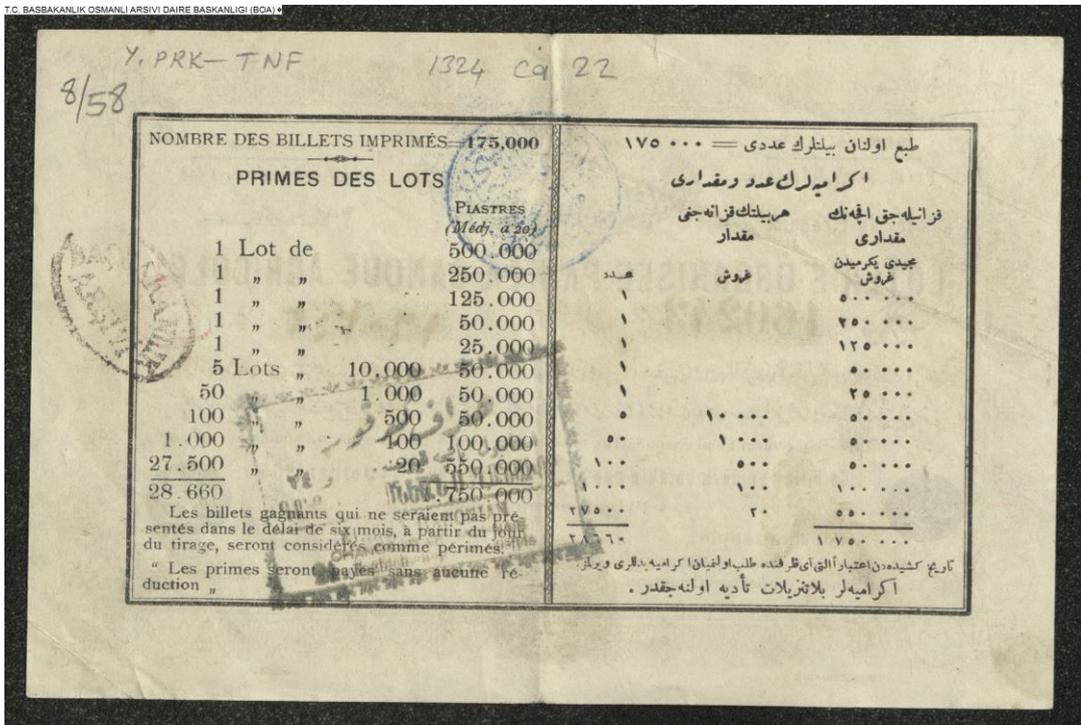 T.C. BASBAKANLIK OSMANLI ARSIVI DAIRE BASKANLIGI (BOA)
Y. PRK - TNF 1324 Ca 22
8/58
NOMBRE DES BILLETS IMPRIMÉS=175,000
PRIMES DES LOTS
PIASTRES
(Médj. à 20)
1 Lot de 500.000
1 „ „ 250.000
1 „ „ 125.000
1 „ „ 50.000
1 „ „ 25.000
5 Lots „ 10,000 50.000
50 „ „ 1.000 50.000
100 „ „ 500 50.000
1.000 „ „ 100 100,000
27.500 „ „ 20 550.000
28.660 1.750.000
Les billets gagnants qui ne seraient pas pré-
sentés dans le délai de six mois, à partir du jour
du tirage, seront considérés comme périmés.
“ Les primes seront payés sans aucune ré-
duction „
طبع اولنان بیلتلرك عددی = ١٧٥٠٠٠
اكرامیه‌لرك عدد و مقداری
قزانیله‌جق اقچه‌نك هر بیلتك قزانه‌جغی
مقداری مقدار
مجیدی یكرمیدن
غروش غروش عدد
٥٠٠٠٠٠ ١
٢٥٠٠٠٠ ١
١٢٥٠٠٠ ١
٥٠٠٠٠ ١
٢٥٠٠٠ ١
٥٠٠٠٠ ١٠٠٠٠ ٥
٥٠٠٠٠ ١٠٠٠ ٥٠
٥٠٠٠٠ ٥٠٠ ١٠٠
١٠٠٠٠٠ ١٠٠ ١٠٠٠
٥٥٠٠٠٠ ٢٠ ٢٧٥٠٠
١٧٥٠٠٠٠ ٢٨٦٦٠
تاریخ كشیده‌دن اعتباراً التی آی ظرفنده طلب اولنمیان اكرامیه بدللری ویرلمز.
اكرامیه‌لر بلاتنزیلات تأدیه اولنه‌جقدر .